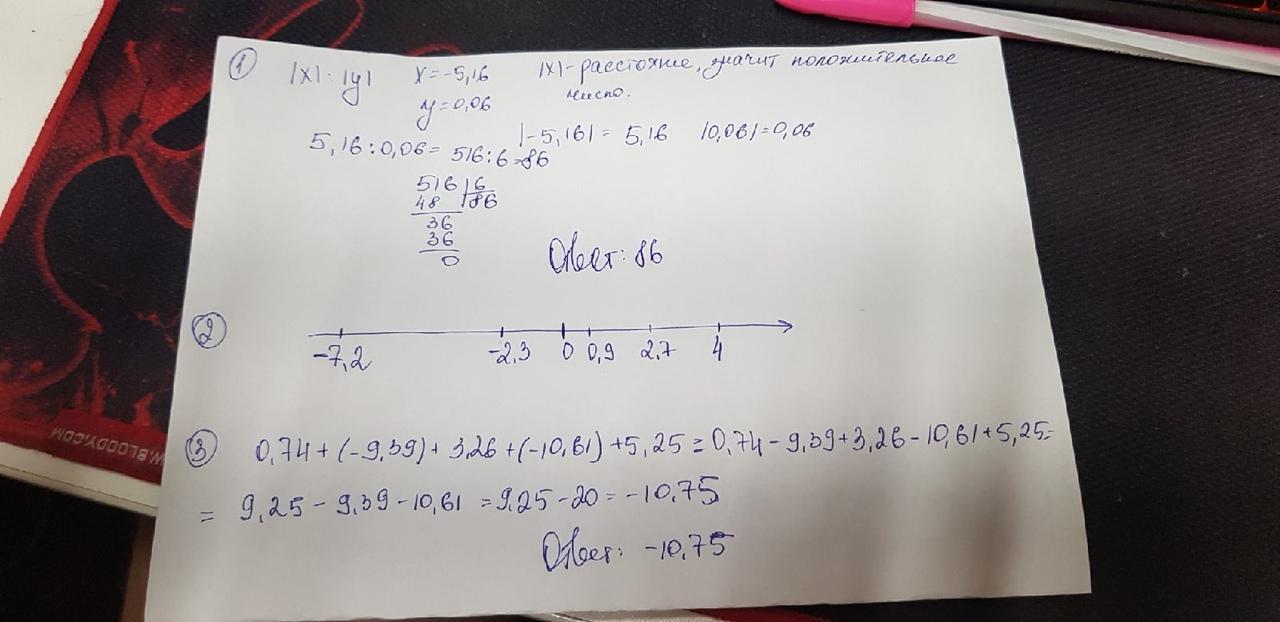 1 |x| : |y| x = -5,16 |x| - расстояние, значит положительное
y = 0,06 число.
|-5,16| = 5,16 |0,06| = 0,06
5,16 : 0,06 = 516 : 6 = 86
516 | 6
48 | 86
36
36
0
Ответ: 86
2
-7,2 -2,3 0 0,9 2,7 4
3 0,74 + (-9,39) + 3,26 + (-10,61) + 5,25 = 0,74 - 9,39 + 3,26 - 10,61 + 5,25 =
= 9,25 - 9,39 - 10,61 = 9,25 - 20 = -10,75
Ответ: -10,75
W.BLOODY.COM